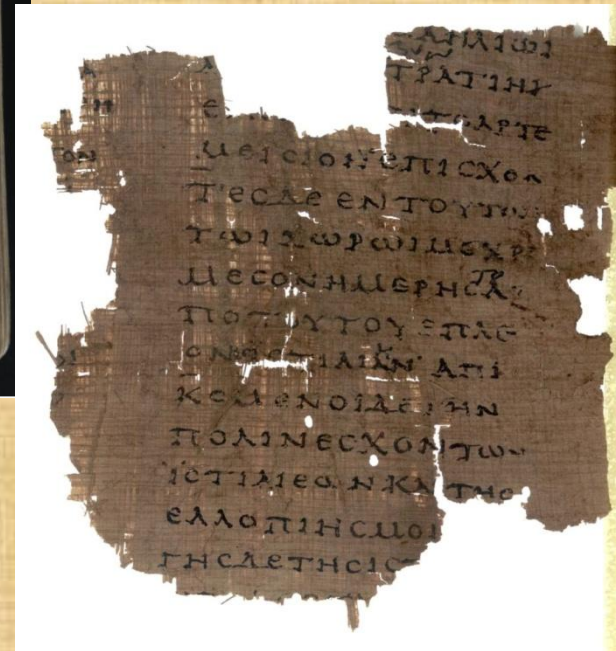 ΑΗΛΙΩΙ
ΤΡΑΤΙΗ
ΤΟΑΡΤΕ
ΜΕΙCΙΟΝ ΕΠΙCΧΟΝ
ΤΕCΔΕ ΕΝΤΟΥΤΩ
ΤΩΙΧΩΡΩΙΜΕΧΡ
ΜΕCΟΝΗΜΕΡΗCΑ
ΠΟΤΟΥΤΟΥΕΠΛΕ
ΟΝ ΤΙΑΙΗΝ ΑΠΙ
ΚΟΜΕΝΟΙΔΕΤΗΝ
ΠΟΛΙΝΕCΧΟΝΤΩΝ
ΙCΤΙΑΙΕΩΝΚΑΙΤΗC
ΕΛΛΟΠΙΗCΜΟΙ
ΓΗCΔΕΤΗCΙC